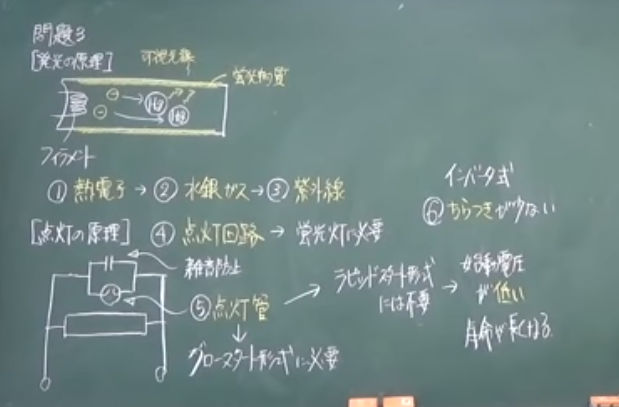 問題3
[発光の原理]
可視光線
蛍光物質
Hg
Hg
フィラメント
① 熱電子 → ② 水銀ガス → ③ 紫外線
[点灯の原理] ④ 点灯回路 → 蛍光灯に必要
雑音防止
⑤ 点灯管
↓
グロースタート形式に必要
→ ラピッドスタート形式
には不要
→ 始動電圧
が低い
寿命が長くなる
インバータ式
⑥ ちらつきが少ない